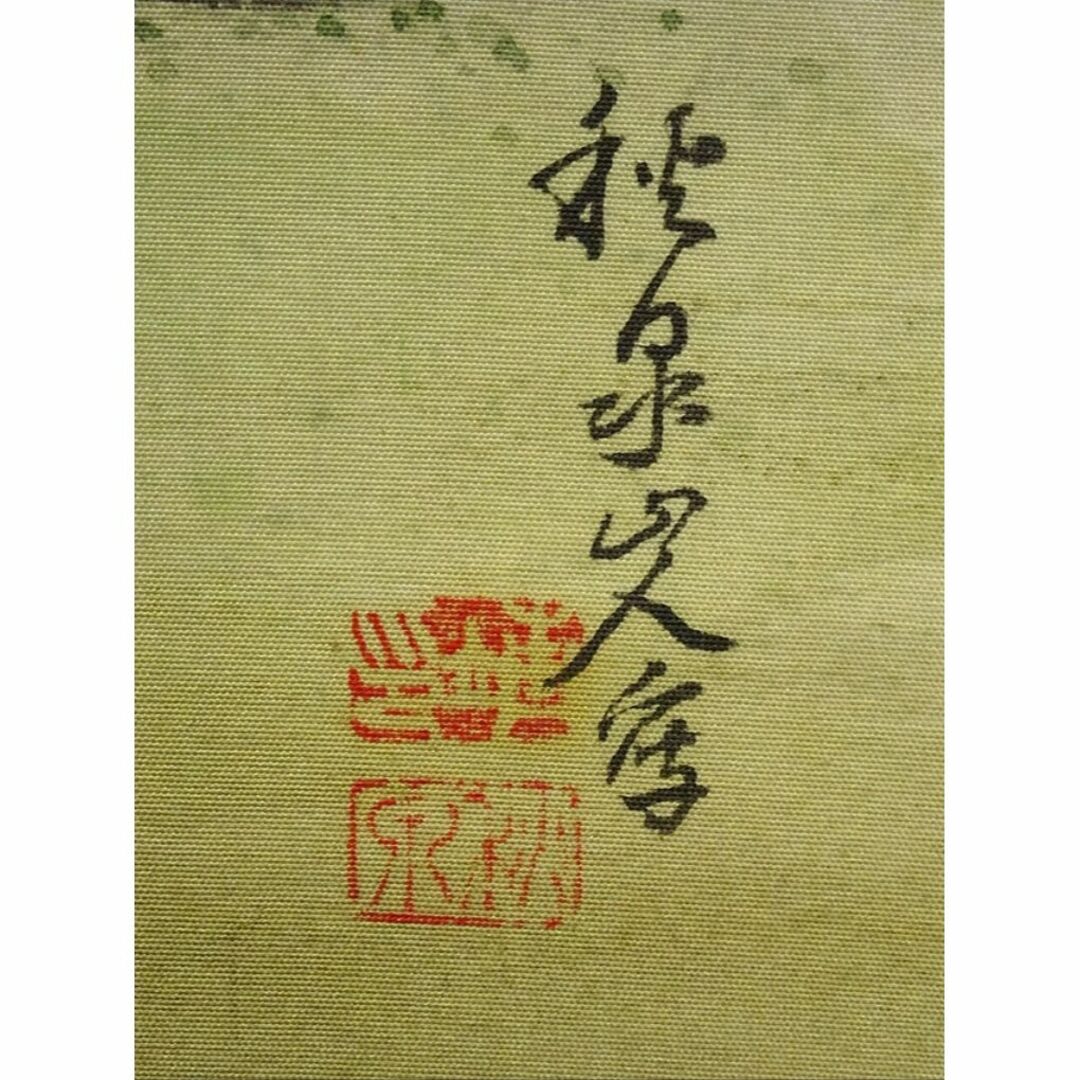 秋泉山人写
秋泉